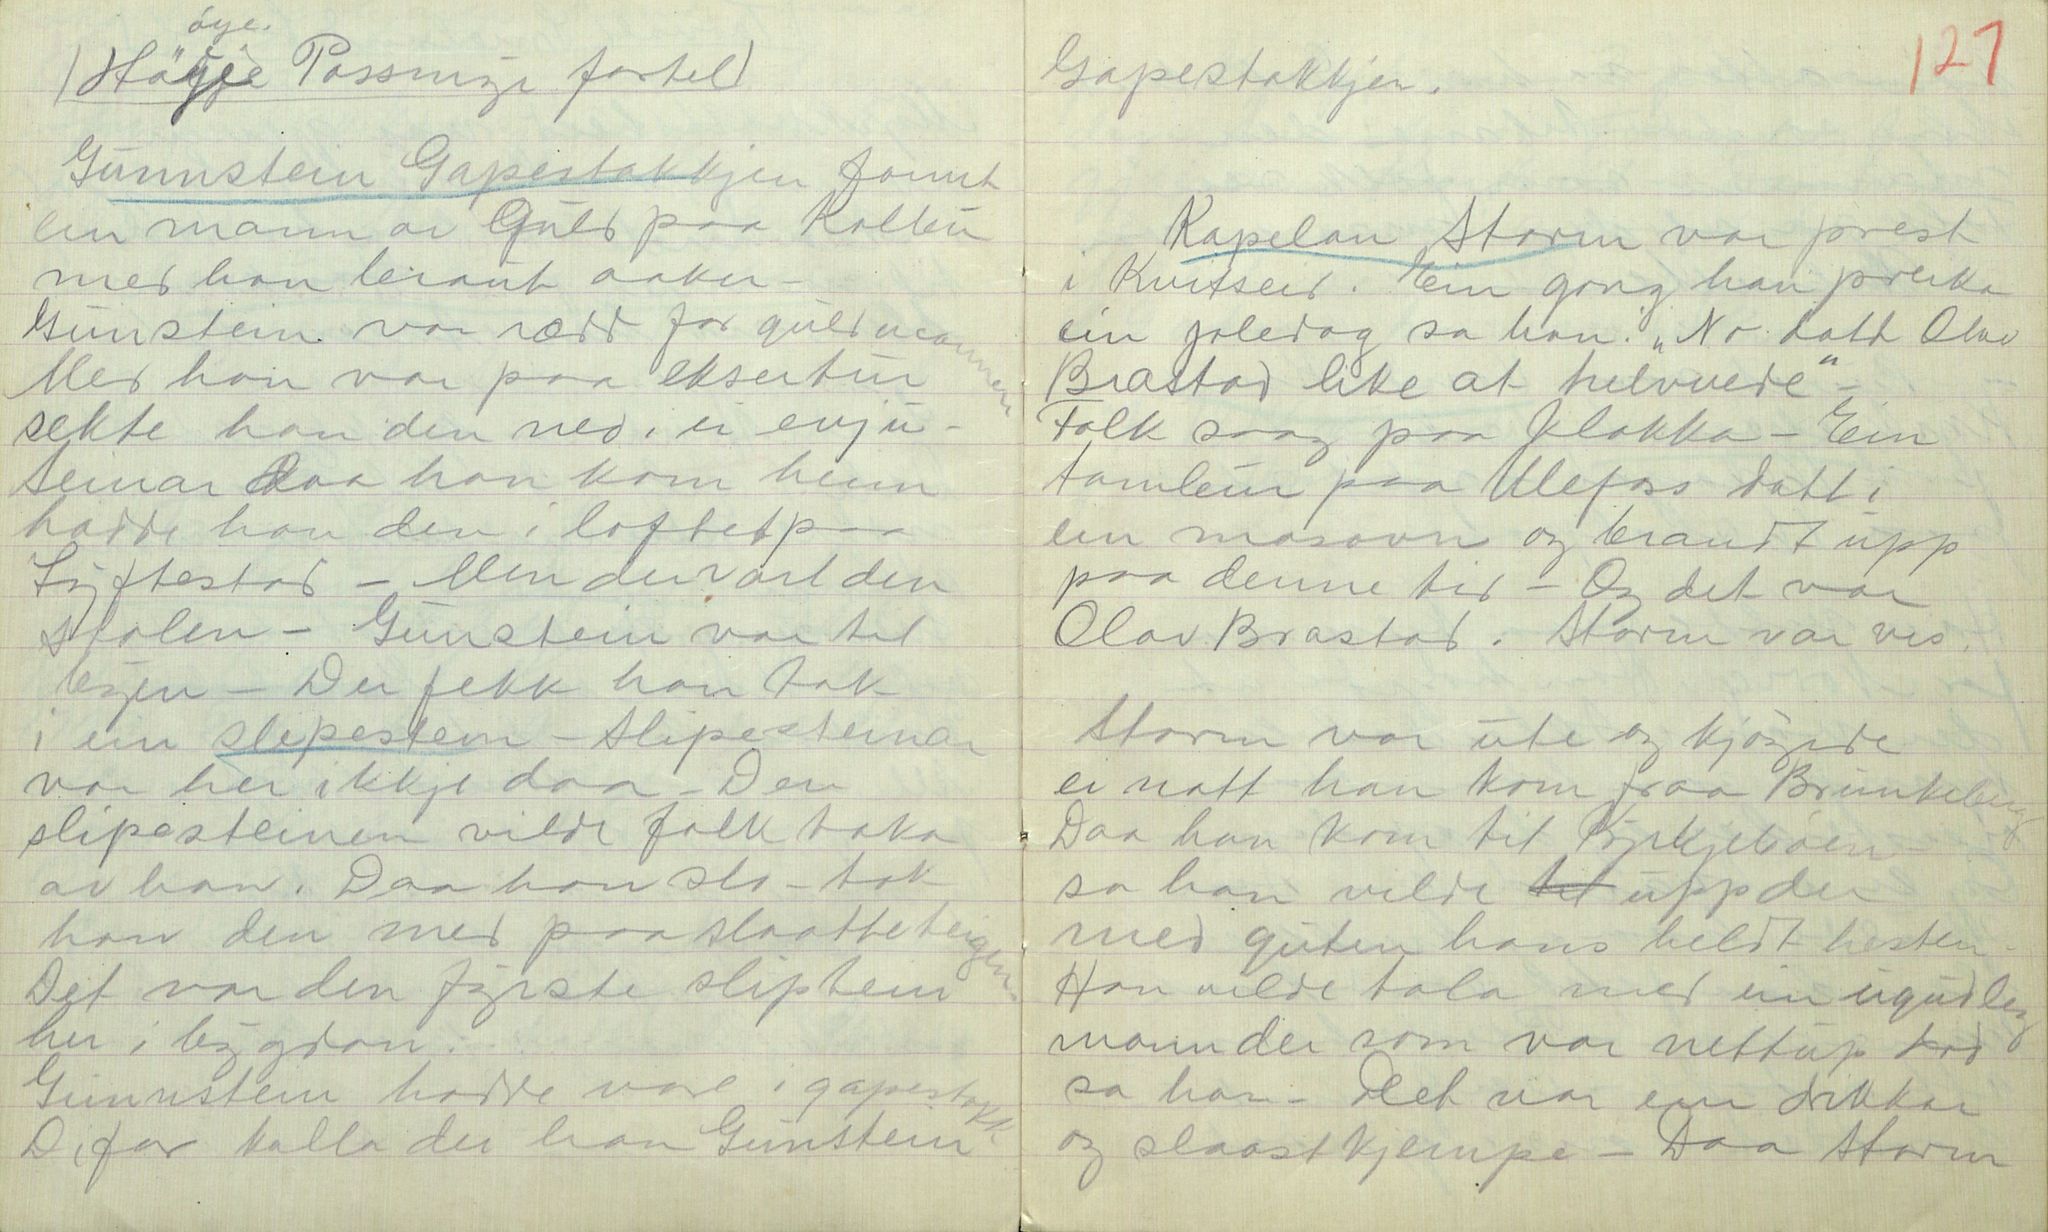 öye.
(Högje Possmyr fortel)
Gunnstein Gapestokkjen fonnt
ein mann av Guld paa Kolltu
med han braut aaker –
Gunstein var rædd for guldmannen
Med han var paa eksertur
sekte han den ned i ei
teinar Daa han kom heim
hadde han den i loftet paa
Lyftestad – Men der vart den
stolen – Gunstein var til
byen – Der fekk han tak
i ein slipestein – Slipesteinar
var her ikkje daa – Den
slipesteinen vilde folk taka
av han. Daa han slo – tok
han den med paa slaatteteigen
Det var den fyrste slipstein
her i bygdan.
Gunnstein hadde vore i gapestokk
Difor kalla dei han Gunstein
127
Gapestokkjen.
Kapelan Storm var prest
i Kvitseid. Ein gong han preika
ein joledag sa han: „No datt Olav
Brastad like at helvuede" –
Folk saag paa klokka – Ein
tomleur paa Ulefoss datt i
ein masovn og brandt upp
paa denne tid – Og det var
Olav Brastad. Storm var vis.
Storm var ute og kjöyrde
ei natt han kom fraa Brunkeberg
Daa han kom til Byrkjeböen –
sa han vilde til upp der
med guten hans heldt hesten –
Han vilde tala med ein ugudleg
mann der som var nettup
sa han – Det var ein drikkar
og slaastkjempe – Daa Storm